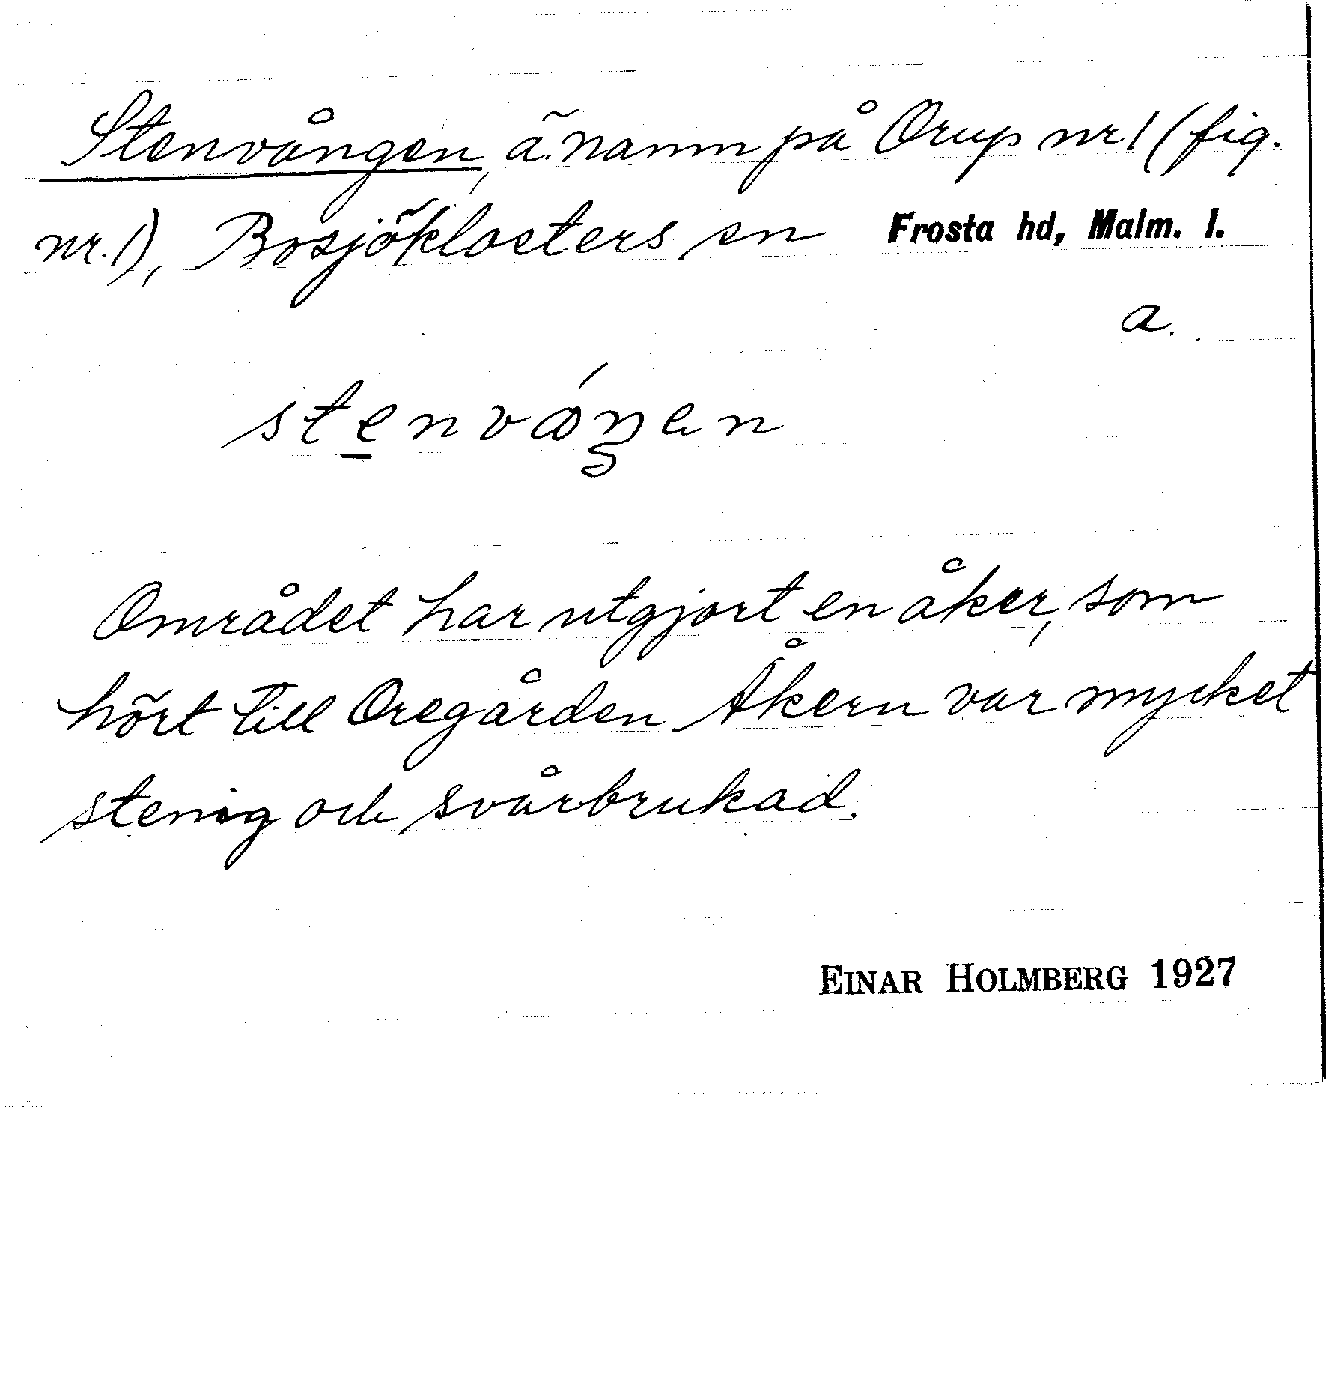 Stenvången, ä.namn på Orup nr 1 (fig.
nr.1), Bosjöklosters sn Frosta hd, Malm. l.
a.
stenváŋen
Området har utgjort en åker, som
hört till Oregården Åkern var mycket
stenig och svårbrukad.
EINAR HOLMBERG 1927